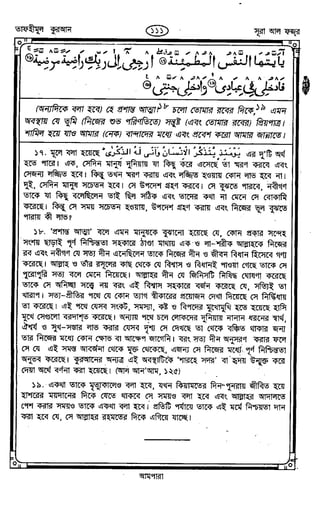 তাফহীমুল কুরআন
১১১
সূরা আল ফজর
يٰٓاَيَّتُهَا النَّفْسُ الْمُطْمَئِنَّةُ ارْجِعِىْٓ اِلٰى رَبِّكِ رَاضِيَةً مَّرْضِيَّةً
فَادْخُلِىْ فِىْ عِبٰدِىْ وَادْخُلِىْ جَنَّتِىْ
(অন্যদিকে বলা হবে) হে প্রশান্ত আত্মা! চলো তোমার রবের দিকে, এমন
অবস্থায় যে তুমি (নিজের শুভ পরিণতিতে) সন্তুষ্ট (এবং তোমার রবের) প্রিয়পাত্র।
শামিল হয়ে যাও আমার (নেক) বান্দাদের মধ্যে এবং প্রবেশ করো আমার জান্নাতে।
১৭. মূলে বলা হয়েছে يَوْمَئِذٍ يَّتَذَكَّرُ الْاِنْسَانُ وَاَنّٰى لَهُ الذِّكْرٰى এর দু'টি অর্থ
হতে পারে। এক, সেদিন মানুষ দুনিয়ায় যা কিছু করে এসেছে তা স্মরণ করবে এবং
সেজন্য লজ্জিত হবে। কিন্তু তখন স্মরণ করায় এবং লজ্জিত হওয়ায় কোন লাভ হবে না।
দুই, সেদিন মানুষ সচেতন হবে। সে উপদেশ গ্রহণ করবে। সে বুঝতে পারবে, নবীগণ
তাকে যা কিছু বলেছিলেন তাই ছিল সঠিক এবং তাদের কথা না মেনে সে বোকামি
করেছে। কিন্তু সে সময় সচেতন হওয়ায়, উপদেশ গ্রহণ করায় এবং নিজের ভুল বুঝতে
পারায় কী লাভ।
১৮. 'প্রশান্ত আত্মা' বলে এমন মানুষকে বুঝানো হয়েছে যে, কোন প্রকার সন্দেহ
সংশয় ছাড়াই পূর্ণ নিশ্চিন্ততা সহকারে ঠাণ্ডা মাথায় এক ও লা-শরীক আল্লাহকে নিজের
রব এবং নবীগণ যে সত্য দীন এনেছিলেন তাকে নিজের দীন ও জীবন বিধান হিসেবে গণ্য
করেছে। আল্লাহ ও তাঁর রসূলের কাছ থেকে যে বিশ্বাস ও বিধানই পাওয়া গেছে তাকে সে
পুরোপুরি সত্য বলে মেনে নিয়েছে। আল্লাহর দীন যে জিনিসটি নিষিদ্ধ ঘোষণা করেছে
তাকে সে অনিচ্ছা সত্ত্বে নয় বরং এই বিশ্বাস সহকারে বর্জন করেছে যে, সত্যিই তা
খারাপ। সত্য-প্রীতির পথে যে কোন ত্যাগ স্বীকারের প্রয়োজন দেখা দিয়েছে সে নির্দ্বিধায়
তা করেছে। এই পথে যেসব সংকট, সমস্যা, কষ্ট ও বিপদের মুখোমুখি হতে হয়েছে হাসি
মুখে সেগুলো বরদাশ্ত করেছে। অন্যায় পথে চলে লোকদের দুনিয়ায় নানান ধরনের স্বার্থ,
ঐশ্বর্য ও সুখ-সম্ভার লাভ করার যেসব দৃশ্য সে দেখছে তা থেকে বঞ্চিত থাকার জন্য
তার নিজের মধ্যে কোন ক্ষোভ বা আক্ষেপ জাগেনি। বরং সত্য দীন অনুসরণ করার ফলে
সে যে এই সমস্ত আবর্জনা থেকে মুক্ত থেকেছে, এজন্য সে নিজের মধ্যে পূর্ণ নিশ্চিন্ততা
অনুভব করেছে। কুরআনের অন্যত্র এই অবস্থাটিকে 'শারহে সদর' বা হৃদয় উন্মুক্ত করে
দেয়া অর্থে বর্ণনা করা হয়েছে। (আল আন'আম, ১২৫)
১৯. একথা তাকে মৃত্যুকালেও বলা হবে, যখন কিয়ামতের দিন পুনরায় জীবিত হয়ে
হাশরের ময়দানের দিকে যেতে থাকবে সে সময়ও বলা হবে এবং আল্লাহর আদালতে
পেশ করার সময়ও তাকে একথা বলা হবে। প্রতিটি পর্যায়ে তাকে এই মর্মে নিশ্চয়তা দান
করা হবে যে, সে আল্লাহর রহমতের দিকে এগিয়ে যাচ্ছে।
আমপারা